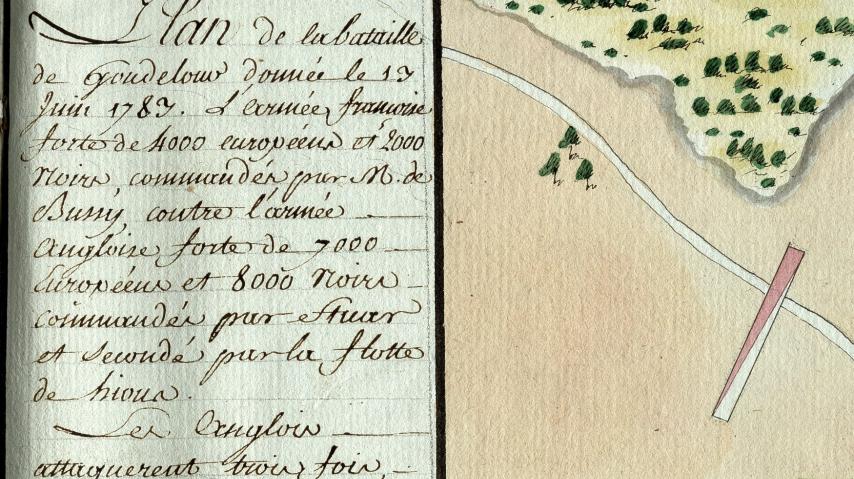 Plan de la bataille
de Goudelour donnée le 13
Juin 1783. L'armée francoise
forte de 4000 européens et 2000
Noirs, commandés par M. de
Bussy contre l'armée
Angloise forte de 7000
Européens et 8000 Noirs
commandés par Stuar
et secondé par la flotte
de hious.
Les Anglois
attaquerent trois fois,